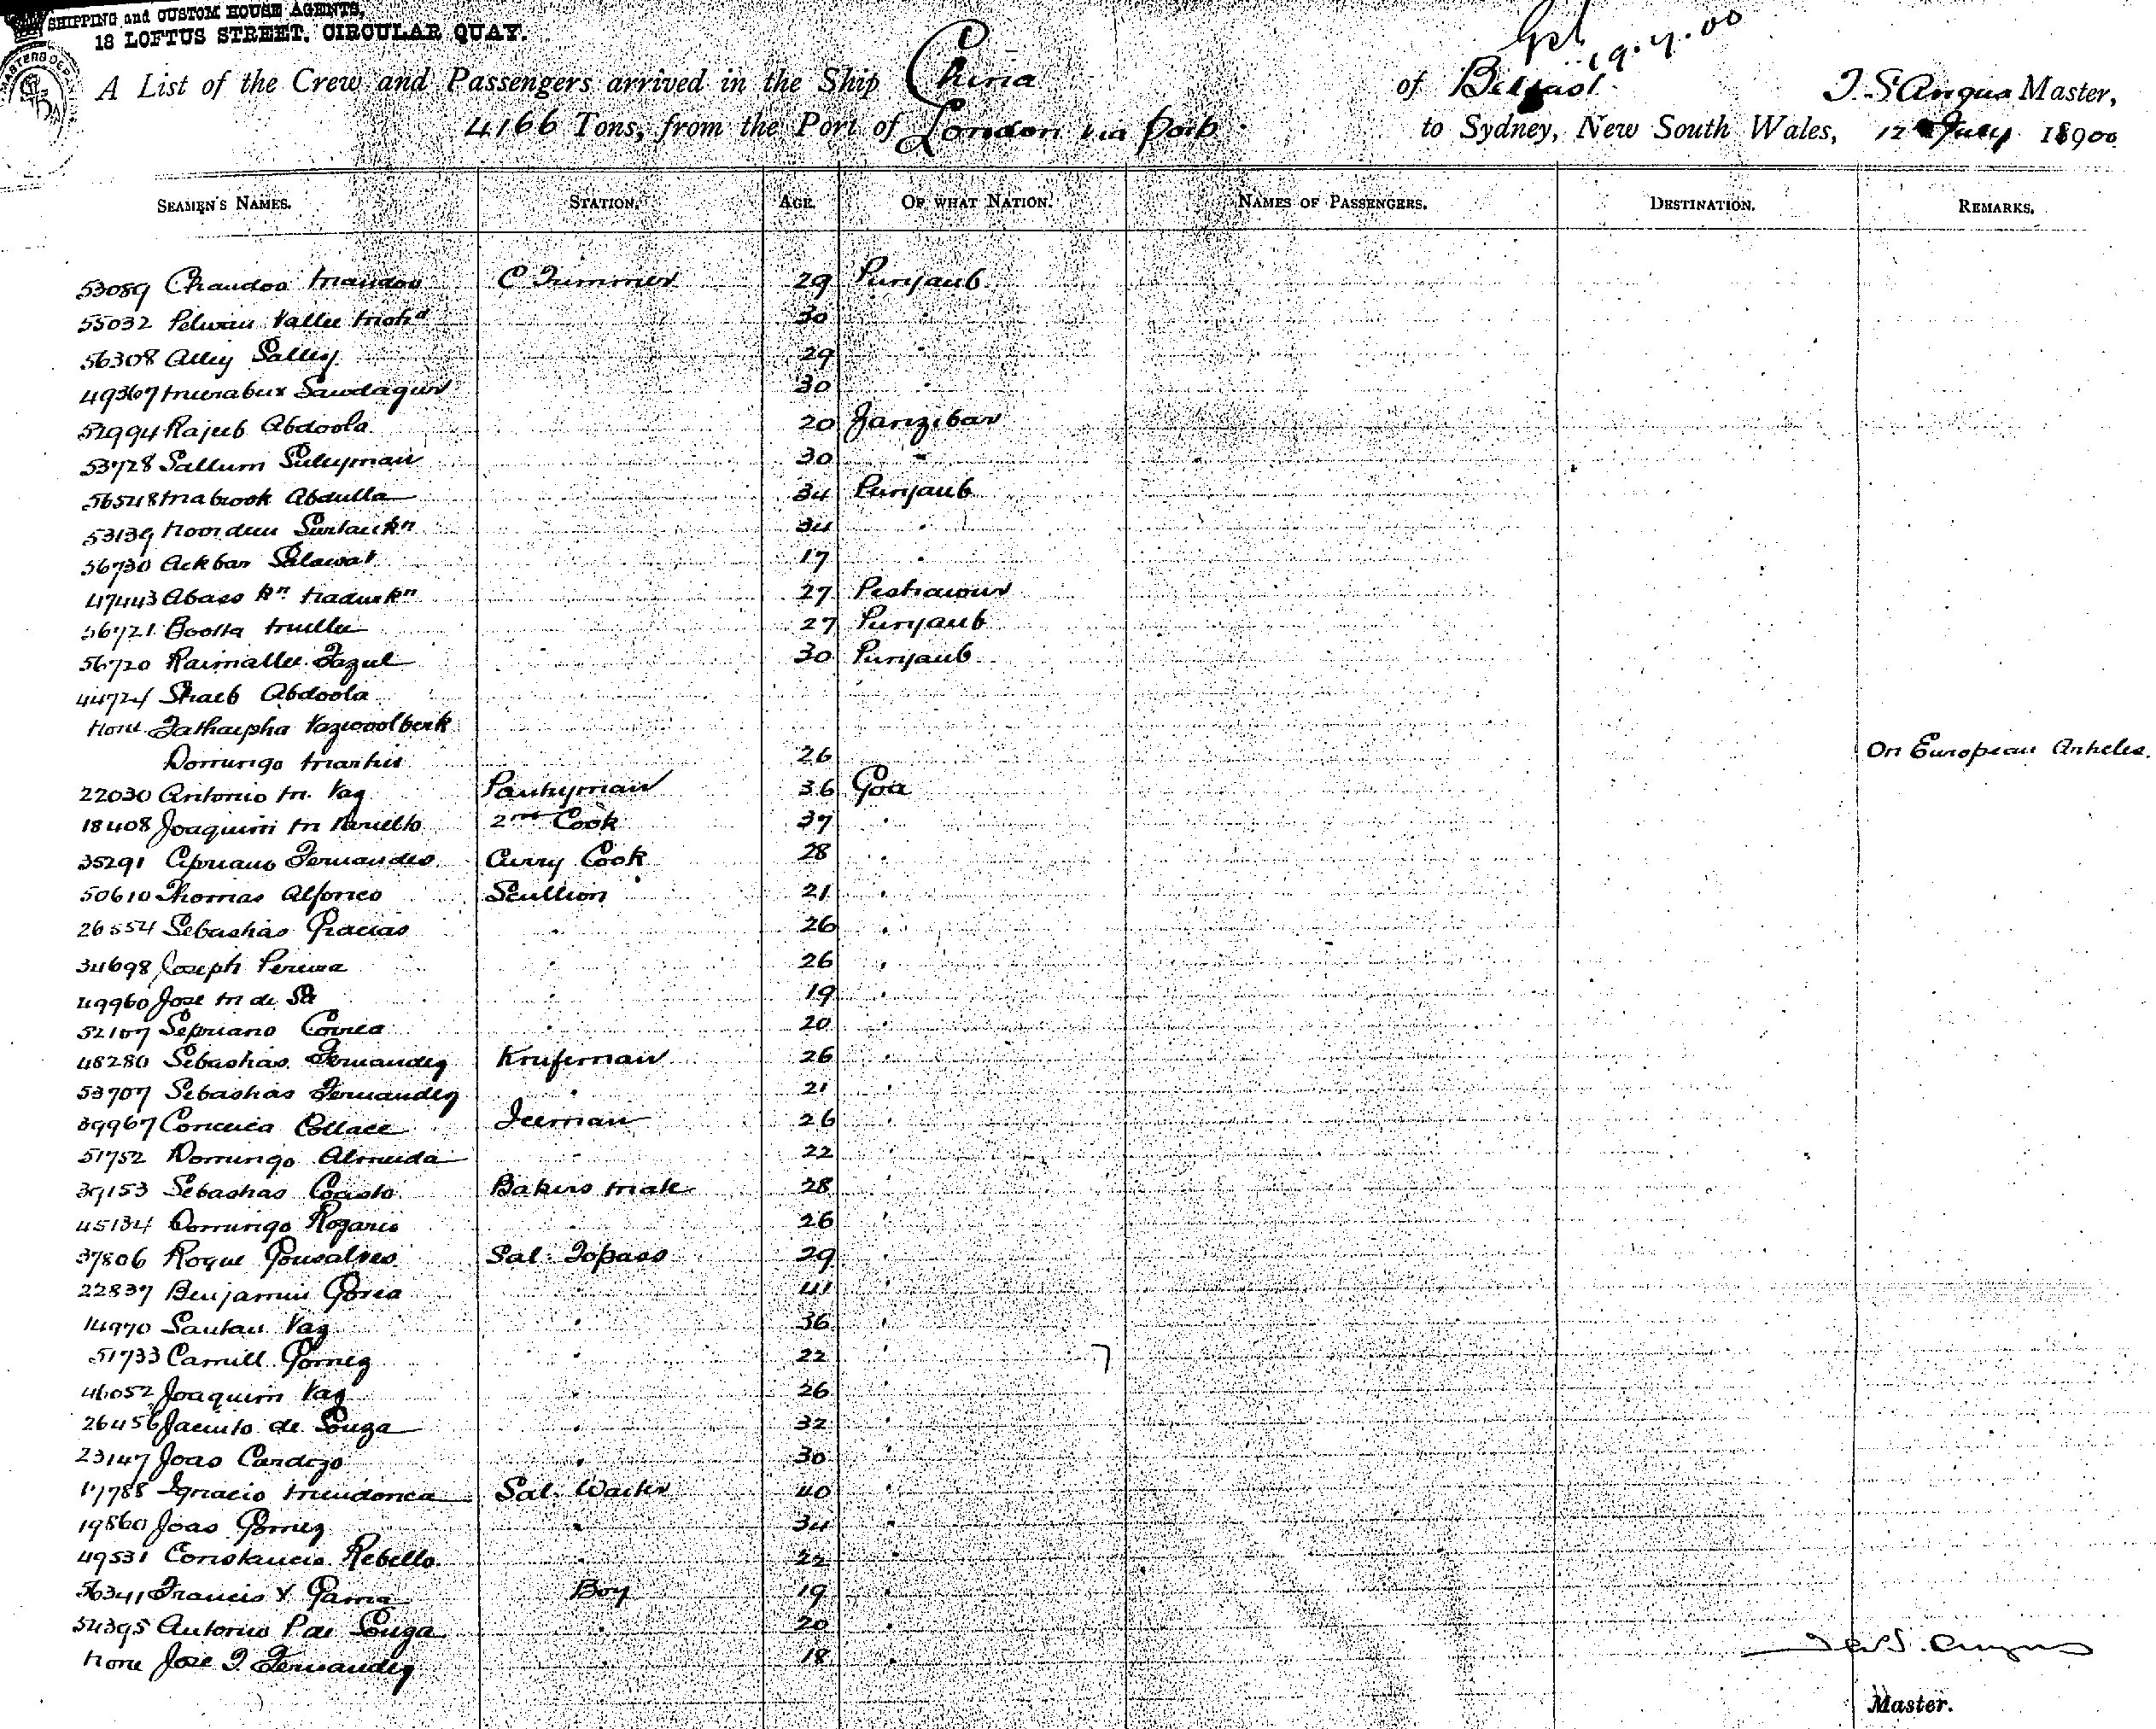 SHIPPING and CUSTOM HOUSE AGENTS,
18 LOFTUS STREET, CIRCULAR QUAY.
19.7.00
A List of the Crew and Passengers arrived in the Ship China of Belfast. J. S. Angus Master,
4166 Tons, from the Port of London via Ports to Sydney, New South Wales, 12 July 1900
SEAMEN'S NAMES. STATION. AGE. OF WHAT NATION. NAMES OF PASSENGERS. DESTINATION. REMARKS.
53089 Chandoo C Trimmer 29 Punjaub
55032 Vallee Mohd 30 "
56308 Alley Salley 29 "
49367 Sawdagur 30 "
52994 Rajub Abdoola 20 Zanzibar
53728 Sallum Suleyman 30 "
56548 Mabrook Abdulla 34 Punjaub
53139 Noordeen 34 "
56730 Ackbar Salawat 17 "
47443 Abass Kn 27 Peshawur
56721 Boolla 27 Punjaub
56720 Raimallee Fazul 30 Punjaub
44724 Shaeb Abdoola
None
Domingo Martins 26 On European Articles.
22030 Antonio M. Vaz Pantryman 36 Goa
18408 Joaquim M 2nd Cook 37 "
35291 Cipriano Fernandes Curry Cook 28 "
50610 Thomas Alfonco Scullion 21 "
26554 Sebastiao Gracias " 26 "
34698 Joseph Pereira " 26 "
49960 Jose M de Sa " 19 "
52107 Sepriano Correa " 20 "
48280 Sebastiao Fernandez Knifeman 26 "
53707 Sebastiao Fernandez " 21 "
39967 Collace Iceman 26 "
51752 Domingo Almeida " 22 "
39153 Sebastiao Bakers Mate 28 "
45134 Domingo Rozario " 26 "
37806 Roque Gonsalves Sal. Topass 29 "
22837 Benjamin " 41 "
14970 Santan Vaz " 36 "
51733 Camill Gomez " 22 "
46052 Joaquim Vaz " 26 "
26456 Jacinto de Souza " 32 "
23147 Joao Cardozo " 30 "
17788 Ignacio Mendonca Sal. Waiter 40 "
19860 Joao Gomez " 34 "
49531 Constancio Rebello " 22 "
56341 Francis X Gama Boy 19 "
54395 Antonio Souza " 20 "
None Jose F Fernandez " 18 "
J. S. Angus
Master.